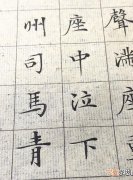 聲滿座
座中泣下
州司馬青